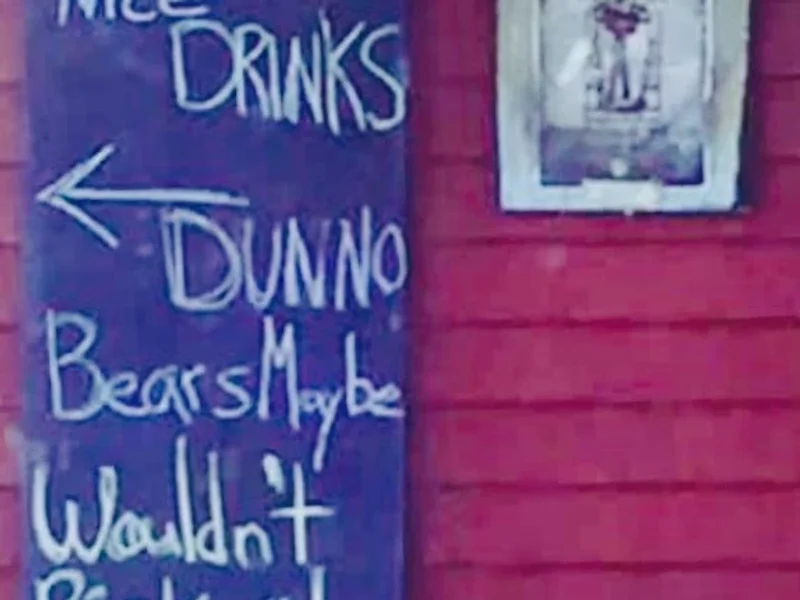 Nice
DRINKS
DUNNO
Bears Maybe
Wouldn't